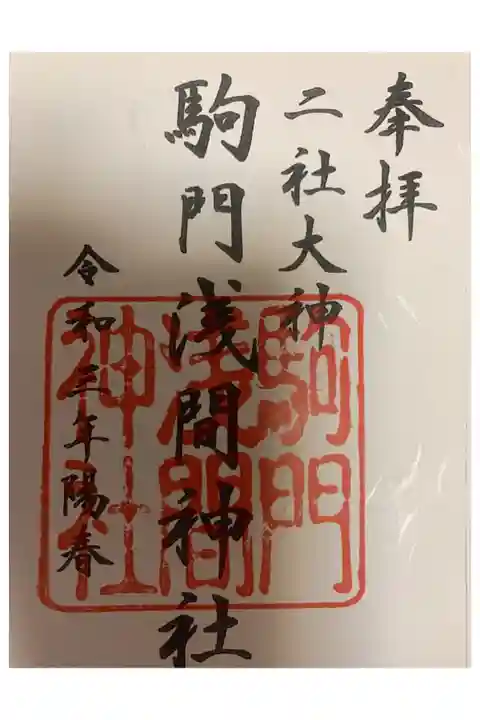 奉拝
二社大神
駒門浅間神社
令和三年陽春
駒門
浅間
神社